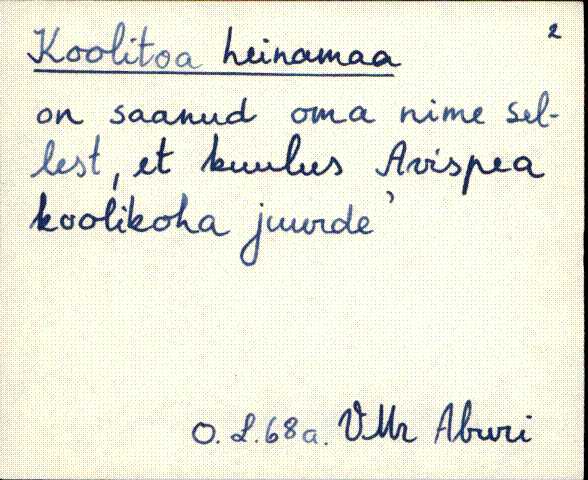 2
Koolitoa heinamaa
on saanud oma nime sel-
lest, et kuulus Avispea
koolikoha juurde'
O. L. 68a. VMr Aburi